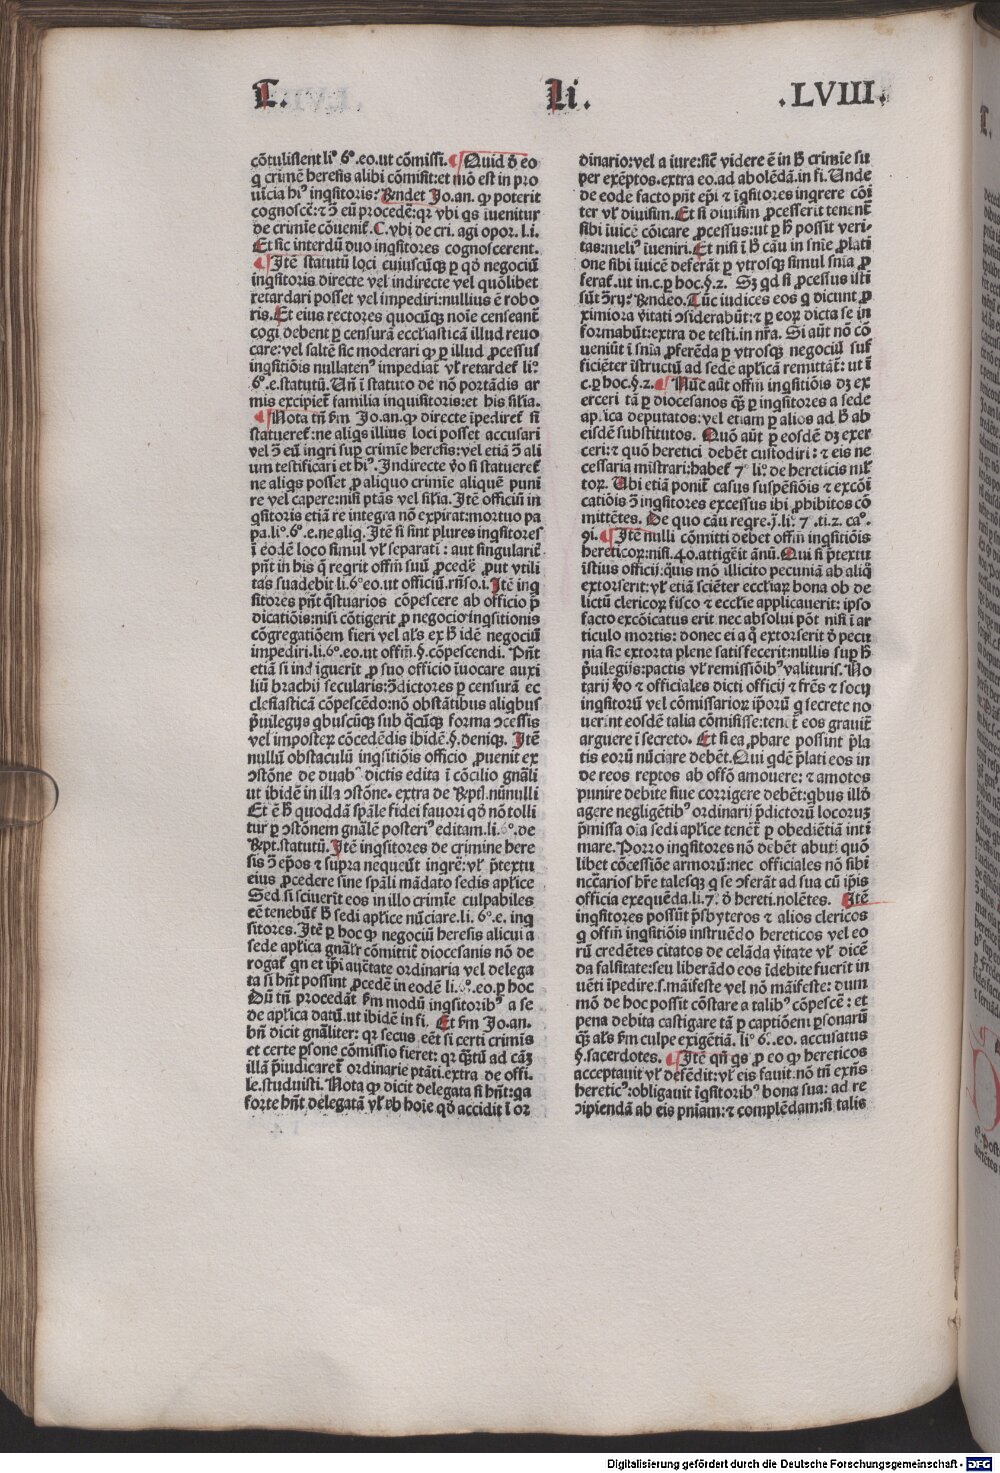 T. Li. .LVIII.
cōtulissent li⁰ 6⁰.eo.ut cōmissi. ¶ Quid d̄ eo
q crimē heresis alibi cōmisit:et mō est in pro
uīcia hi⁹ inqsitoris: Rn̄det Jo.an. ꝙ poterit
cognoscē:⁊ ꝯ eū procedē:qꝛ vbi qs iuenitur
de crimie cōuenit̄. C. vbi de cri. agi opor. l.i.
Et sic interdū duo inqsitores cognoscerent.
¶ Itē statutū loci cuiuscūqꝫ per qd̄ negociū
inqsitoris directe vel indirecte vel quōlibet
retardari posset vel impediri:nullius ē robo
ris. Et eius rectores quocūqꝫ noīe censeant̄
cogi debent ꝑ censurā eccl̄iasticā illud reuo
care:vel saltē sic moderari ꝙ ꝑ illud ꝓcessus
inqsitiōis nullaten⁹ impediat̄ vl̄ retardet̄ li⁰
6⁰.e.statutū. Un̄ i statuto de nō portādis ar
mis excipiet̄ familia inquisitoris:et his similia.
¶ Nota tn̄ ẜm Jo.an.ꝙ directe īpediret̄ si
statueret̄:ne aliqs illius loci posset accusari
vel ꝯ eū inqri sup crimīe heresis:vel etiā ꝯ ali
um testificari et hi⁹. Indirecte v̄o si statueret̄
ne aliqs posset ꝓ aliquo crimīe aliquē puni
re vel capere:nisi ptās vel similia. Itē officiū in
qsitoris etiā re integra nō expirat:mortuo pa
pa.li⁰.6⁰.e.ne aliq. Itē si sint plures inqsitores
ī eodē loco simul vl̄ separati : aut singularit̄
pn̄t in his q̄ reqrit offm̄ suū ꝓcedē ꝓut vtili
tas suadebit li.6⁰ eo.ut officiū.rn̄so.i. Itē inq
sitores pn̄t q̄stuarios cōpescere ab officio p̄
dicatiōis:nisi cōtigerit ꝓ negocio inqsitionis
cōgregatiōem fieri vel al̄s ex ħ idē negociū
impediri.li.6⁰.eo.ut offm̄.§.cōpescendi. Pn̄t
etiā si indiguerīt ꝓ suo officio īuocare auxi
liū brachij secularis:ꝯdictores ꝑ censurā ec
clesiasticā cōpescēdo:nō obstātibus aliqbus
p̄uilegijs qbuscūqꝫ sub q̄cūqꝫ forma ꝯcessis
vel imposteꝝ cōcedēdis ibidē.§.deniqꝫ. Itē
nullū obstaculū inqsitiōis officio ꝓuenit ex
ꝯstōne de duab⁹ dictis edita ī cōcilio gn̄ali
ut ibidē in illa ꝯstōne. extra de Rept̄.nūnulli
Et ē ħ quoddā sp̄ale fidei fauori qd̄ nō tolli
tur ꝑ ꝯstōnem gn̄alē posteri⁹ editam.li.6⁰.de
Rept.statutū. Itē inqsitores de crimine here
sis ꝯ ep̄os ⁊ supra nequeūt inqrē:vl̄ p̄textu
eius ꝓcedere sine sp̄ali mādato sedis apl̄ice
Sed si sciuerīt eos in illo crimīe culpabiles
eē tenebūt̄ ħ sedi apl̄ice nūciare.li. 6⁰.e. inq
sitores. Itē ꝑ hoc ꝙ negociū heresis alicui a
sede apl̄ica gn̄alit̄ cōmittit̄ diocesanis nō de
rogat̄ qn̄ et ip̄i auc̄tate ordinaria vel delega
ta si hn̄t possint ꝓcedē in eodē li.6⁰.eo.ꝑ hoc
Dū tn̄ procedāt ẜm modū inqsitorib⁹ a se
de apl̄ica datū.ut ibidē in fi. Et ẜm Jo.an.
hn̄ dicit gn̄aliter: qꝛ secus eēt si certi crimīs
et certe ꝑsone cōmissio fieret: qꝛ qꝫtū ad cāꝫ
illā p̄iudicaret̄ ordinarie ptāti.extra de offi.
le.studuisti. Nota ꝙ dicit delegata si hn̄t:qa
forte hn̄t delegatā vl̄ ab hoīe qd̄ accidit ī or
dinario:vel a iure:sic̄ videre ē in ħ crimīe su
per exēptos.extra eo.ad abolēdā.in fi. Unde
de eodē facto pn̄t ep̄i ⁊ īqsitores inqrere cōi
ter vl̄ diuisim. Et si diuisim ꝓcesserīt tenent̄
sibi īuicē cōicare ꝓcessus:ut ꝑ ħ possit veri-
tas:meli⁹ īueniri. Et nisi ī ħ cāu in sn̄ie ꝓlati
one sibi īuicē deferāt ꝑ vtrosqꝫ simul sn̄ia ꝓ
ferat̄.ut in.c.ꝑ hoc.§.2. Sꝫ qd si ꝓcessus isti
sūt ꝯrij: Rn̄deo. Tūc iudices eos q dicunt ꝓ
ximiora v̄itati ꝯsiderabūt:⁊ ꝑ eoꝝ dicta se in
formabūt:extra de testi.in nr̄a. Si aūt nō cō
ueniūt ī sn̄ia ꝓferēda ꝑ vtrosqꝫ negociū suf
ficiēter īstructū ad sede apl̄icā remittāt̄: ut ī
c.ꝑ hoc.§.2. ¶ Nūc aūt offm̄ inqsitiōis dꝫ ex
erceri tā ꝑ diocesanos qꝫ ꝑ inqsitores a sede
aplica deputatos:vel etiam ꝑ alios ad ħ ab
eisdē substitutos. Quō aūt ꝑ eosdē dꝫ exer
ceri:⁊ quō heretici debēt custodiri : ⁊ eis ne
cessaria mīstrari:habet̄ 7⁰ li⁰. de hereticis ml̄
toꝝ. Ubi etiā ponit̄ casus suspēsiōis ⁊ excōi
catiōis ꝯ inqsitores excessus ibi ꝓhibitos cō
mittētes. De quo cāu reqre.j.li⁰. 7 .ti.2. ca⁰.
9i. ¶ Itē nulli cōmitti debet offm̄ inqsitiōis
hereticoꝝ:nisi.40.attigeīt ānū. Qui si p̄textu
istius officij:quis mō illicito pecuniā ab aliq̄
extorserīt:vl̄ etiā sciēter eccl̄iaꝝ bona ob de
lictū clericoꝝ fisco ⁊ eccl̄ie applicauerit: ipso
facto excōicatus erit nec absolui pōt nisi ī ar
ticulo mortis: donec ei a q̄ extorserīt d̄ pecu
nia sic extorta plene satisfecerit:nullis sup ħ
p̄uilegijs:pactis vl̄ remissiōib⁹ valituris. No
tarij v̄o ⁊ officiales dicti officij ⁊ fr̄es ⁊ socij
inqsitorū vel cōmissarioꝝ ip̄orū q secrete no
uerint eosdē talia cōmisisse:tenēt̄ eos grauit̄
arguere ī secreto. Et si ea ꝓbare possint p̄la
tis eorū nūciare debēt. Qui qdē p̄lati eos in
de reos rep̄tos ab offō amouere: ⁊ amotos
punire debite siue corrigere debēt:qbus illd̄
agere negligētib⁹ ordinarij p̄dictorū locoruꝫ
p̄missa oīa sedi apl̄ice tenēt̄ ꝑ obediētiā inti
mare. Porro inqsitores nō debēt abuti quō
libet cōcessiōe armorū:nec officiales nō sibi
nccārios hr̄e talesqꝫ q se ꝯferāt ad sua cū ip̄is
officia exequēda.li.7.d̄ hereti.nolētes. Itē
inqsitores possūt p̄sbyteros ⁊ alios clericos
q offm̄ inqsitiōis instruēdo hereticos vel eo
rū credētes citatos de celāda v̄itate vl̄ dicē
da falsitate:seu liberādo eos īdebite fuerīt in
uēti īpedire.s.māifeste vel nō māifeste: dum
mō de hoc possit cōstare a talib⁹ cōpescē: et
pena debita castigare tā ꝑ captiōem ꝑsonarū
qꝫ al̄s ẜm culpe exigētiā. li⁰ 6⁰.eo. accusatus
§.sacerdotes. ¶ Itē qn̄ qs ꝓ eo ꝙ hereticos
acceptauit vl̄ defēdit:vl̄ eis fauit.nō tn̄ exn̄s
heretic⁹:obligauit īqsitorib⁹ bona sua: ad re
ꝯipiendā ab eis pn̄iam:⁊ complēdam:si talis
Digitalisierung gefördert durch die Deutsche Forschungsgemeinschaft - DFG